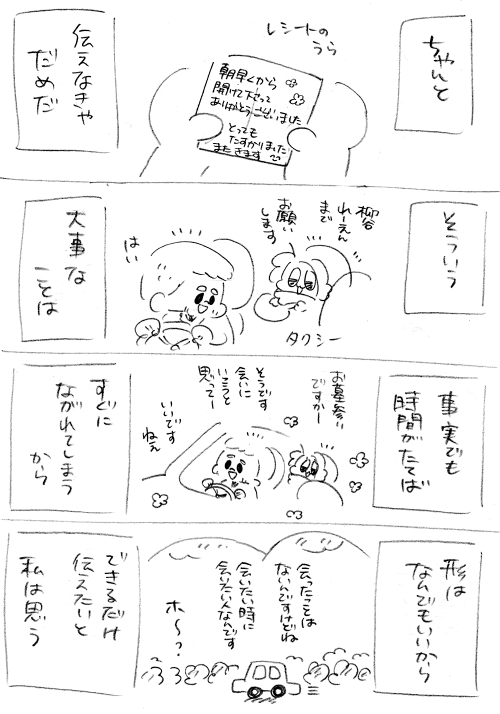 ちゃんと
レシートの
うら
朝早くから
開けて下さって
ありがとうございました
とっても
たすかりました
またきます
伝えなきゃ
だめだ
そういう
柳谷
れーえん
まで
お願い
します
はい
タクシー
大事な
ことは
事実でも
時間がたてば
お墓参り
ですかー
そうです
会いに
いこうと
思ってー
いいです
ねぇ
すぐに
ながれてしまう
から
形は
なんでもいいから
会ったことは
ないんですけどね
会いたい時に
会いたい人なんです
ホ〜?
できるだけ
伝えたいと
私は思う